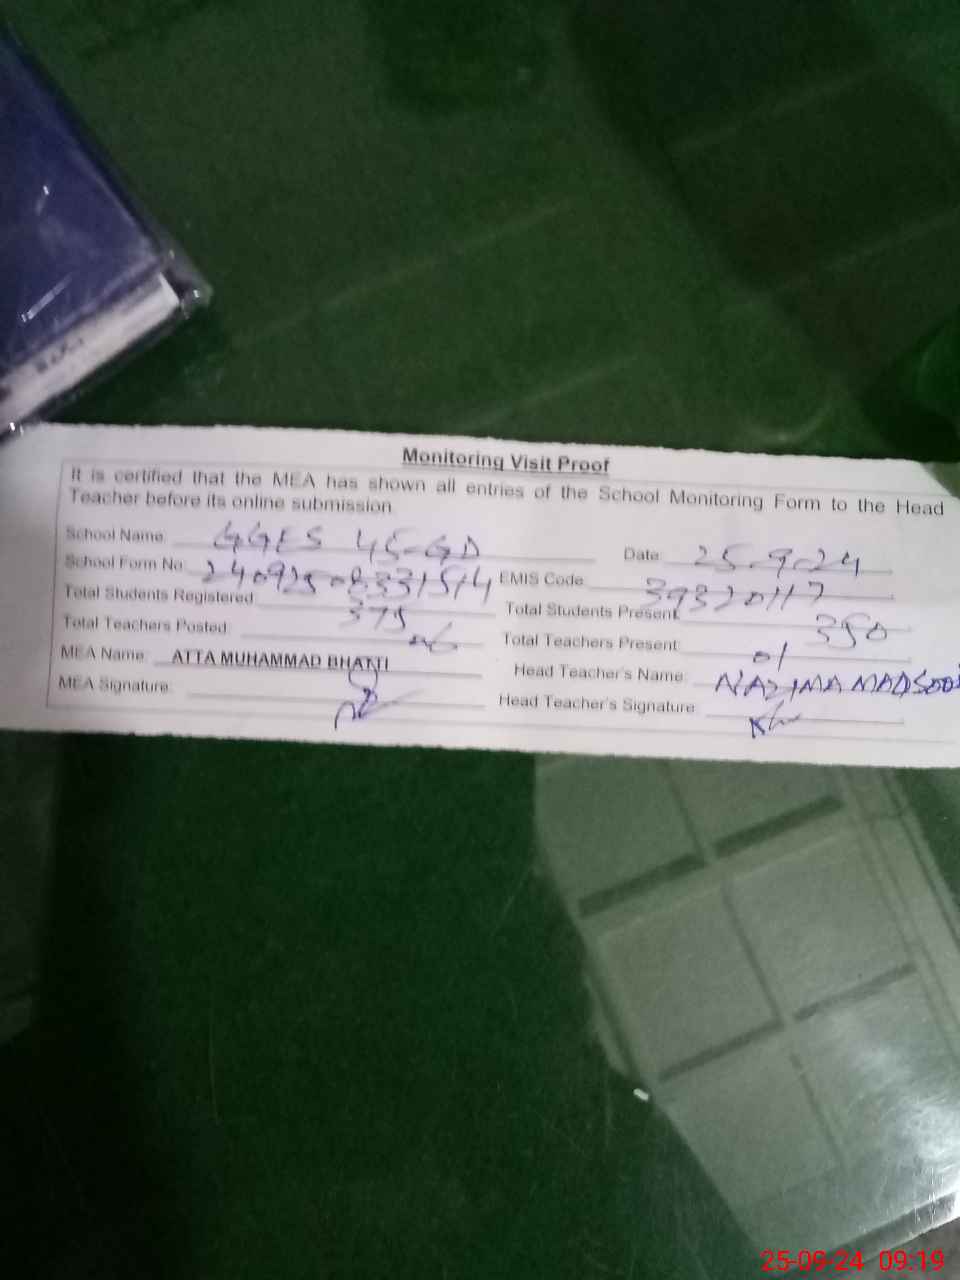 Monitoring Visit Proof
It is certified that the MEA has shown all entries of the School Monitoring Form to the Head
Teacher before its online submission.
School Name: GGES 45-GD Date: 25-9-24
School Form No: EMIS Code: 39320117
Total Students Registered: 375 Total Students Present: 350
Total Teachers Posted: 06 Total Teachers Present: 01
MEA Name: ATTA MUHAMMAD BHATTI Head Teacher's Name: NAZIMA
MEA Signature: Head Teacher's Signature:
25-09-24 09:19